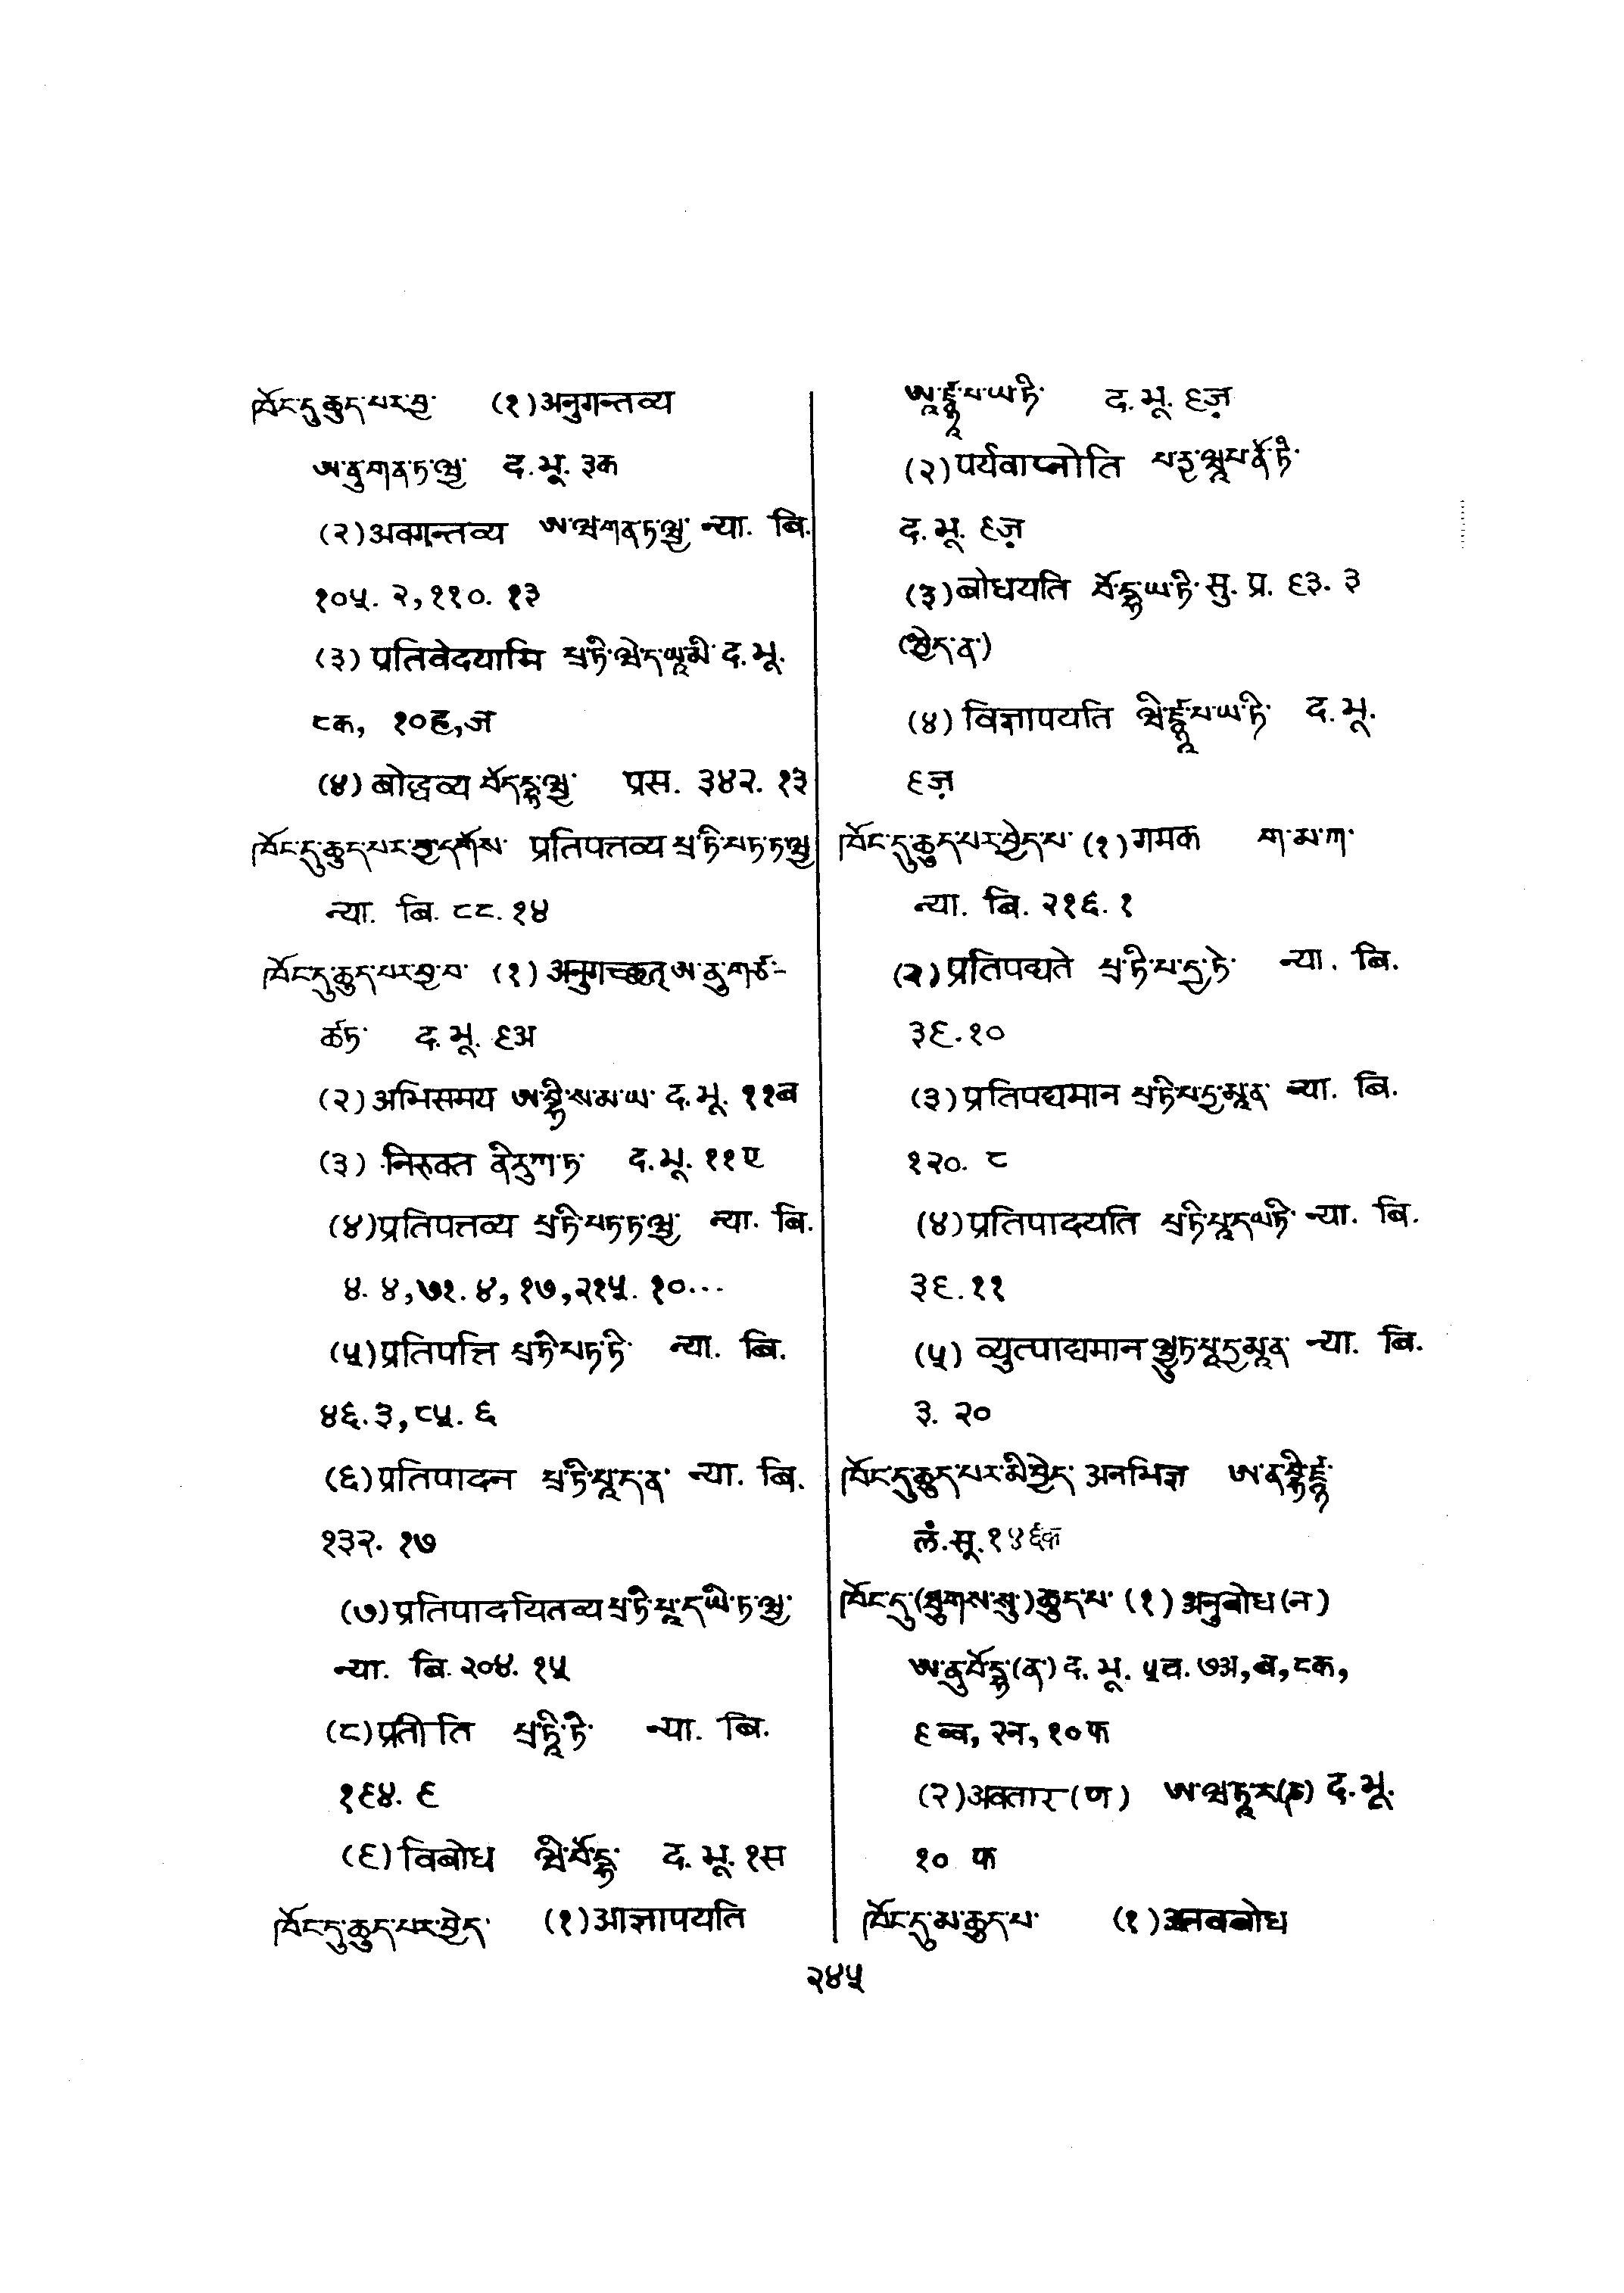 ཁོང་དུ་ཆུད་པར་བྱ་ (१) अनुगन्तव्य
ཨ་ནུ་གན་ཏ་ཝྱ་ द. भू. ३क
(२) अवगन्तव्य ཨ་ཝ་གན་ཏ་ཝྱ་ न्या. बि.
१०५. २, ११०. १३
(३) प्रतिवेदयामि པྲ་ཏི་ཝེ་ད་ཡཱ་མི་ द. भू.
८क, १०ह, ज
(४) बोद्धव्य བོད་དྷ་ཝྱ་ प्रस. ३४२. १३
ཁོང་དུ་ཆུད་པར་བྱ་དགོས་ प्रतिपत्तव्य པྲ་ཏི་པཏ་ཏ་ཝྱ
न्या. बि. ८८. १४
ཁོང་དུ་ཆུད་པར་བྱ་བ་ (१) अनुगच्छत् ཨ་ནུ་གཙ་-
ཚཏ་ द. भू. ९अ
(२) अभिसमय ཨ་བྷི་ས་མ་ཡ་ द. भू. ११ब
(३) निरुक्त ནི་རུཀ་ཏ་ द. भू. ११ए
(४) प्रतिपत्तव्य པྲ་ཏི་པཏ་ཏ་ཝྱ་ न्या. बि.
४. ४, ७१. ४, १७, २१५. १०...
(५) प्रतिपत्ति པྲ་ཏི་པཏ་ཏི་ न्या. बि.
४६. ३, ८५. ६
(६) प्रतिपादन པྲ་ཏི་པཱ་ད་ན་ न्या. बि.
१३२. १७
(७) प्रतिपादयितव्य པྲ་ཏི་པཱ་ད་ཡི་ཏ་ཝྱ་
न्या. बि. २०४. १५
(८) प्रतीति པྲ་ཏཱི་ཏི་ न्या. बि.
१९४. ९
(९) विबोध ཝི་བོ་དྷ་ द. भू. १स
ཁོང་དུ་ཆུད་པར་བྱེད་ (१) आज्ञापयति
ཨཱ་ཛྙཱ་པ་ཡ་ཏི་ द. भू. ९ज़
(२) पर्यवाप्नोति པརྱ་ཝཱཔ་ནོ་ཏི་
द. भू. ९ज़
(३) बोधयति བོ་དྷ་ཡ་ཏི་ सु. प्र. ९३. ३
(བྱེད་ན་)
(४) विज्ञापयति ཝི་ཛྙཱ་པ་ཡ་ཏི་ द. भू.
९ज़
ཁོང་དུ་ཆུད་པར་བྱེད་པ་ (१) गमक ག་མ་ཀ་
न्या. बि. २१६. १
(२) प्रतिपद्यते པྲ་ཏི་པ་དྱ་ཏེ་ न्या. बि.
३९. १०
(३) प्रतिपद्यमान པྲ་ཏི་པ་དྱ་མཱན་ न्या. बि.
१२०. ८
(४) प्रतिपादयति པྲ་ཏི་པཱ་ད་ཡ་ཏི་ न्या. बि.
३९. ११
(५) व्युत्पाद्यमान ཝྱུཏ་པཱ་དྱ་མཱན་ न्या. बि.
३. २०
ཁོང་དུ་ཆུད་པར་མི་བྱེད་ अनभिज्ञ ཨ་ན་བྷི་ཛྙ་
लं. सू. १४६क
ཁོང་དུ་(ཐུགས་སུ་)ཆུད་པ་ (१) अनुबोध (न)
ཨ་ནུ་བོ་དྷ་(ན་) द. भू. ५व. ७अ, ब, ८क,
९ब्ब, २न, १०फ
(२) अवतार (ण) ཨ་ཝ་ཏཱ་ར་(ཎ) द. भू.
१० फ
ཁོང་དུ་མ་ཆུད་པ་ (१) अनवबोध
२४५